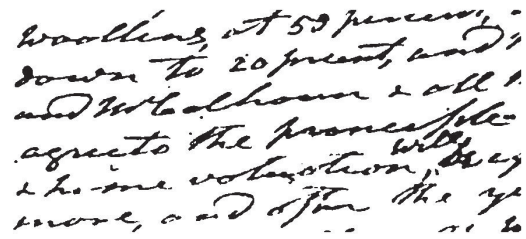 woollens, at 53 percent,
down to 20 prcent, and
and Mr Calhoun & all
agree to the principle
& home valuation, will be
more, and after the ye